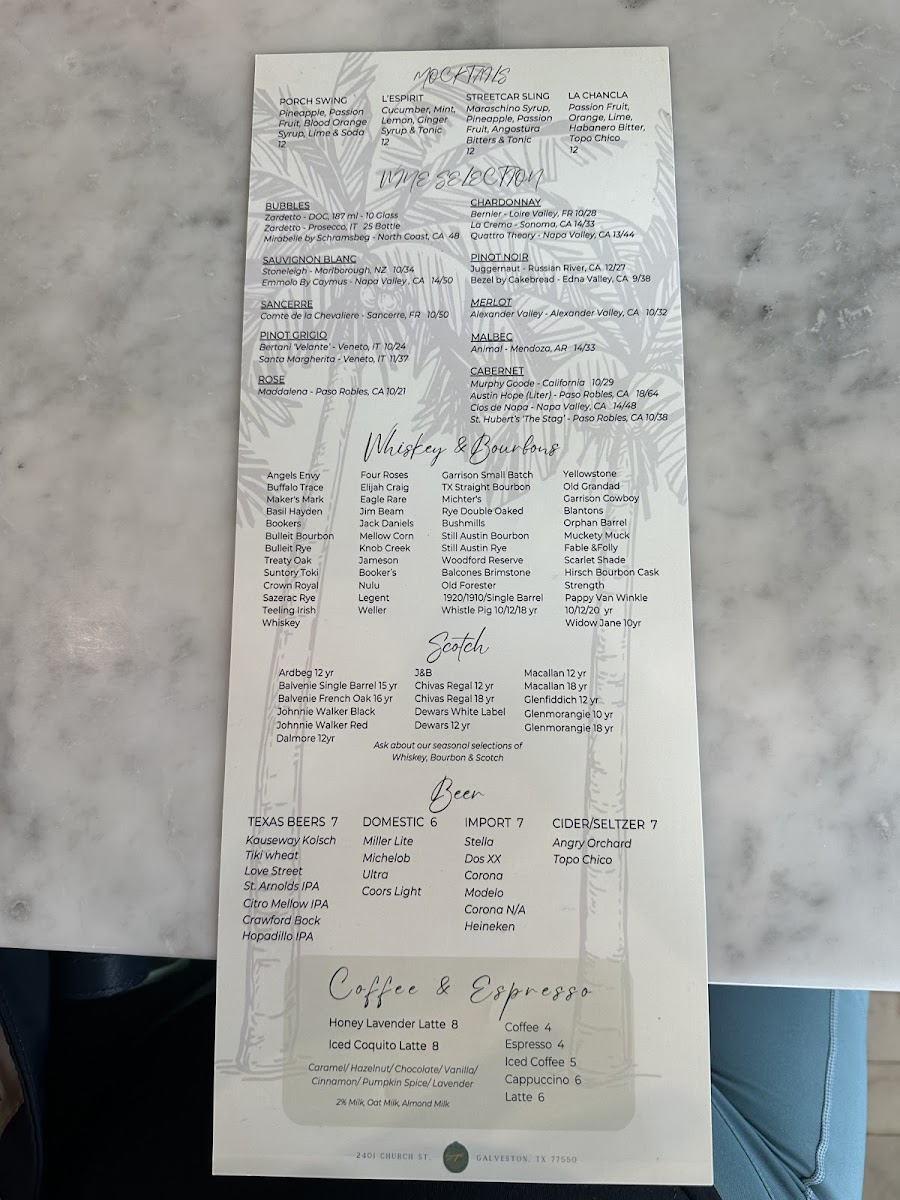 MOCKTAILS
PORCH SWING
Pineapple, Passion
Fruit, Blood Orange
Syrup, Lime & Soda
12
L'ESPIRIT
Cucumber, Mint,
Lemon, Ginger
Syrup & Tonic
12
STREETCAR SLING
Maraschino Syrup,
Pineapple, Passion
Fruit, Angostura
Bitters & Tonic
12
LA CHANCLA
Passion Fruit,
Orange, Lime,
Habanero Bitter,
Topo Chico
12
WINE SELECTION
BUBBLES
Zardetto - DOC, 187 ml - 10 Glass
Zardetto - Prosecco, IT 25 Bottle
Mirabelle by Schramsbeg - North Coast, CA 48
SAUVIGNON BLANC
Stoneleigh - Marlborough, NZ 10/34
Emmolo By Caymus - Napa Valley, CA 14/50
SANCERRE
Comte de la Chevaliere - Sancerre, FR 10/50
PINOT GRIGIO
Bertani 'Velante' - Veneto, IT 10/24
Santa Margherita - Veneto, IT 11/37
ROSE
Maddalena - Paso Robles, CA 10/21
CHARDONNAY
Bernier - Loire Valley, FR 10/28
La Crema - Sonoma, CA 14/33
Quattro Theory - Napa Valley, CA 13/44
PINOT NOIR
Juggernaut - Russian River, CA 12/27
Bezel by Cakebread - Edna Valley, CA 9/38
MERLOT
Alexander Valley - Alexander Valley, CA 10/32
MALBEC
Animal - Mendoza, AR 14/33
CABERNET
Murphy Goode - California 10/29
Austin Hope (Liter) - Paso Robles, CA 18/64
Clos de Napa - Napa Valley, CA 14/48
St. Hubert's 'The Stag' - Paso Robles, CA 10/38
Whiskey & Bourbons
Angels Envy
Buffalo Trace
Maker's Mark
Basil Hayden
Bookers
Bulleit Bourbon
Bulleit Rye
Treaty Oak
Suntory Toki
Crown Royal
Sazerac Rye
Teeling Irish
Whiskey
Four Roses
Elijah Craig
Eagle Rare
Jim Beam
Jack Daniels
Mellow Corn
Knob Creek
Jameson
Booker's
Nulu
Legent
Weller
Garrison Small Batch
TX Straight Bourbon
Michter's
Rye Double Oaked
Bushmills
Still Austin Bourbon
Still Austin Rye
Woodford Reserve
Balcones Brimstone
Old Forester
1920/1910/Single Barrel
Whistle Pig 10/12/18 yr
Yellowstone
Old Grandad
Garrison Cowboy
Blantons
Orphan Barrel
Muckety Muck
Fable &Folly
Scarlet Shade
Hirsch Bourbon Cask
Strength
Pappy Van Winkle
10/12/20 yr
Widow Jane 10yr
Scotch
Ardbeg 12 yr
Balvenie Single Barrel 15 yr
Balvenie French Oak 16 yr
Johnnie Walker Black
Johnnie Walker Red
Dalmore 12yr
J&B
Chivas Regal 12 yr
Chivas Regal 18 yr
Dewars White Label
Dewars 12 yr
Macallan 12 yr
Macallan 18 yr
Glenfiddich 12 yr
Glenmorangie 10 yr
Glenmorangie 18 yr
Ask about our seasonal selections of
Whiskey, Bourbon & Scotch
Beer
TEXAS BEERS 7
Kauseway Kolsch
Tiki wheat
Love Street
St. Arnolds IPA
Citro Mellow IPA
Crawford Bock
Hopadillo IPA
DOMESTIC 6
Miller Lite
Michelob
Ultra
Coors Light
IMPORT 7
Stella
Dos XX
Corona
Modelo
Corona N/A
Heineken
CIDER/SELTZER 7
Angry Orchard
Topo Chico
Coffee & Espresso
Honey Lavender Latte 8
Iced Coquito Latte 8
Caramel/ Hazelnut/ Chocolate/ Vanilla/
Cinnamon/ Pumpkin Spice/ Lavender
2% Milk, Oat Milk, Almond Milk
Coffee 4
Espresso 4
Iced Coffee 5
Cappuccino 6
Latte 6
2401 CHURCH ST. GALVESTON, TX 77550